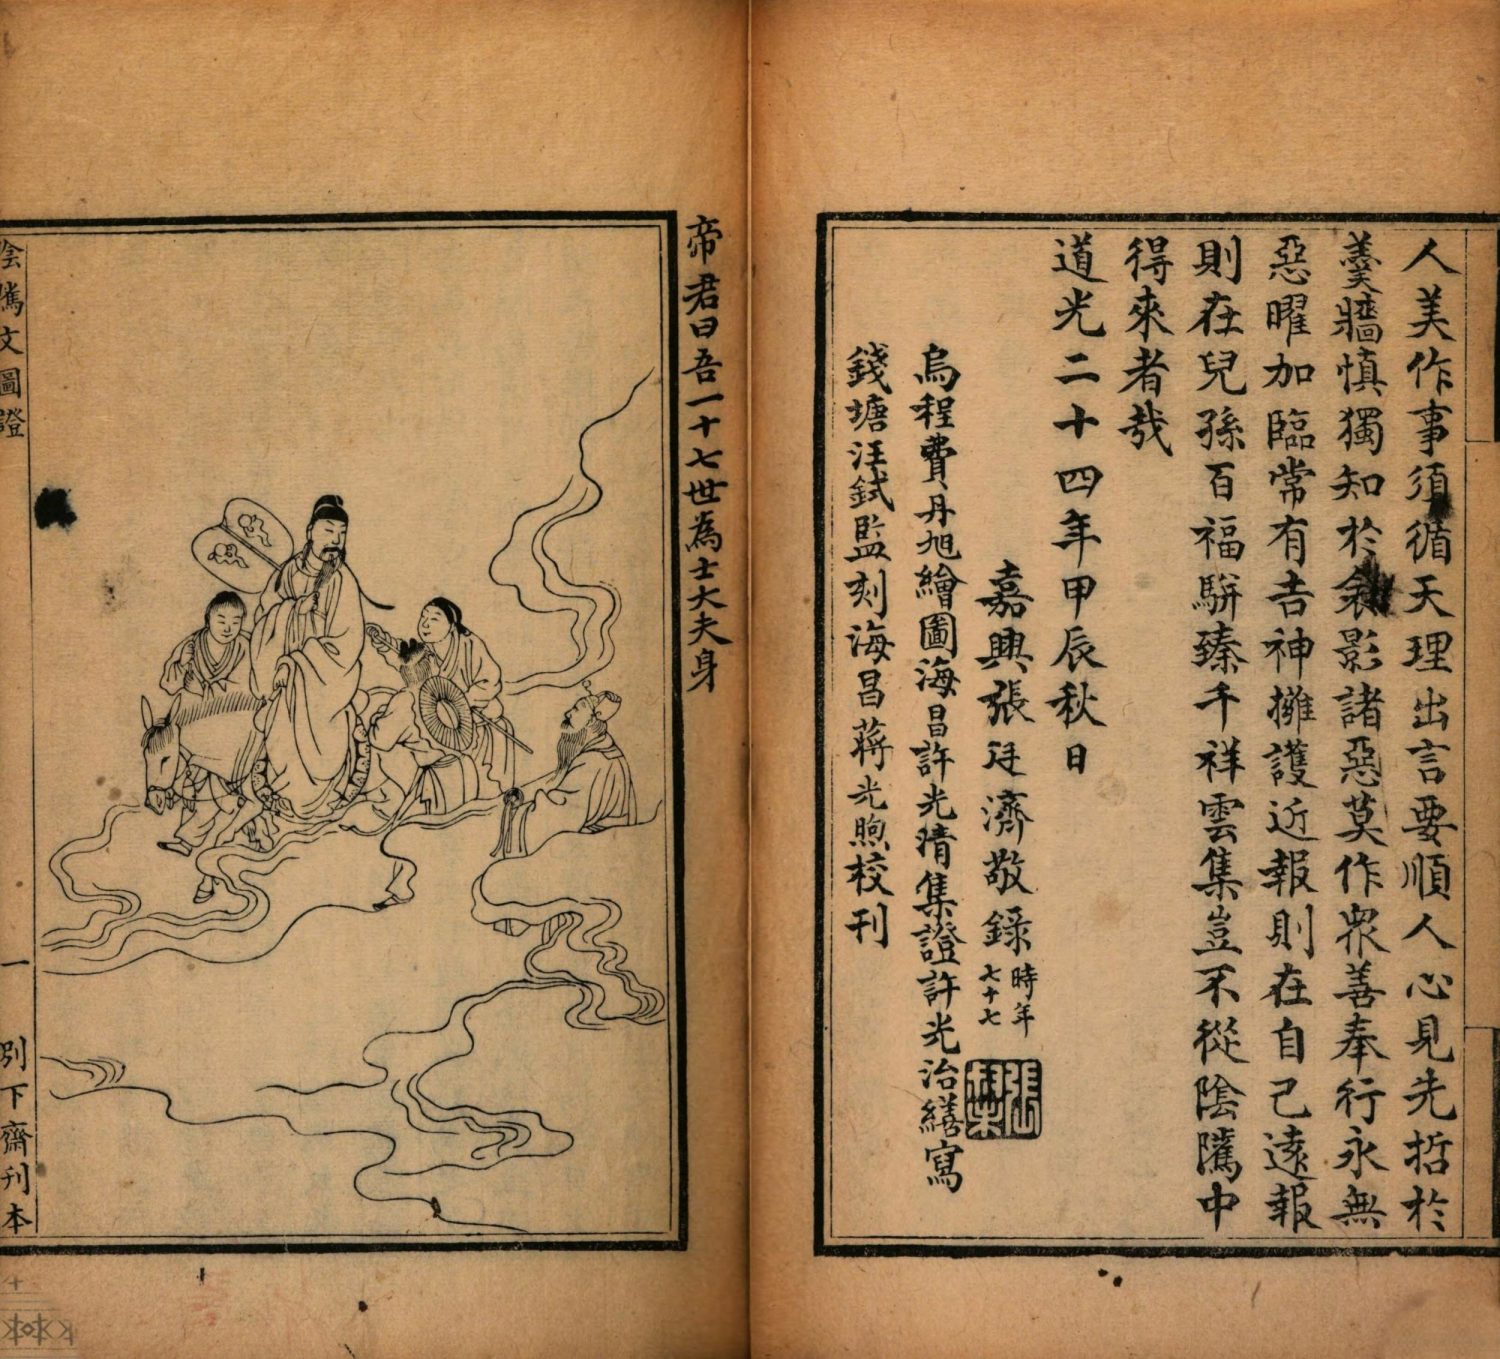 人美作事須循天理出言要順人心見先哲於
羹牆慎獨知於衾影諸惡莫作眾善奉行永無
惡曜加臨常有吉神擁護近報則在自己遠報
則在兒孫百福駢臻千祥雲集豈不從陰隲中
得來者哉
道光二十四年甲辰秋日
嘉興張廷濟敬錄時年七十七
烏程費丹旭繪圖海昌許光清集證許光治繕寫
錢塘汪鉽監刻海昌蔣光煦校刊
帝君曰吾一十七世為士大夫身
陰隲文圖證
一
別下齋刊本